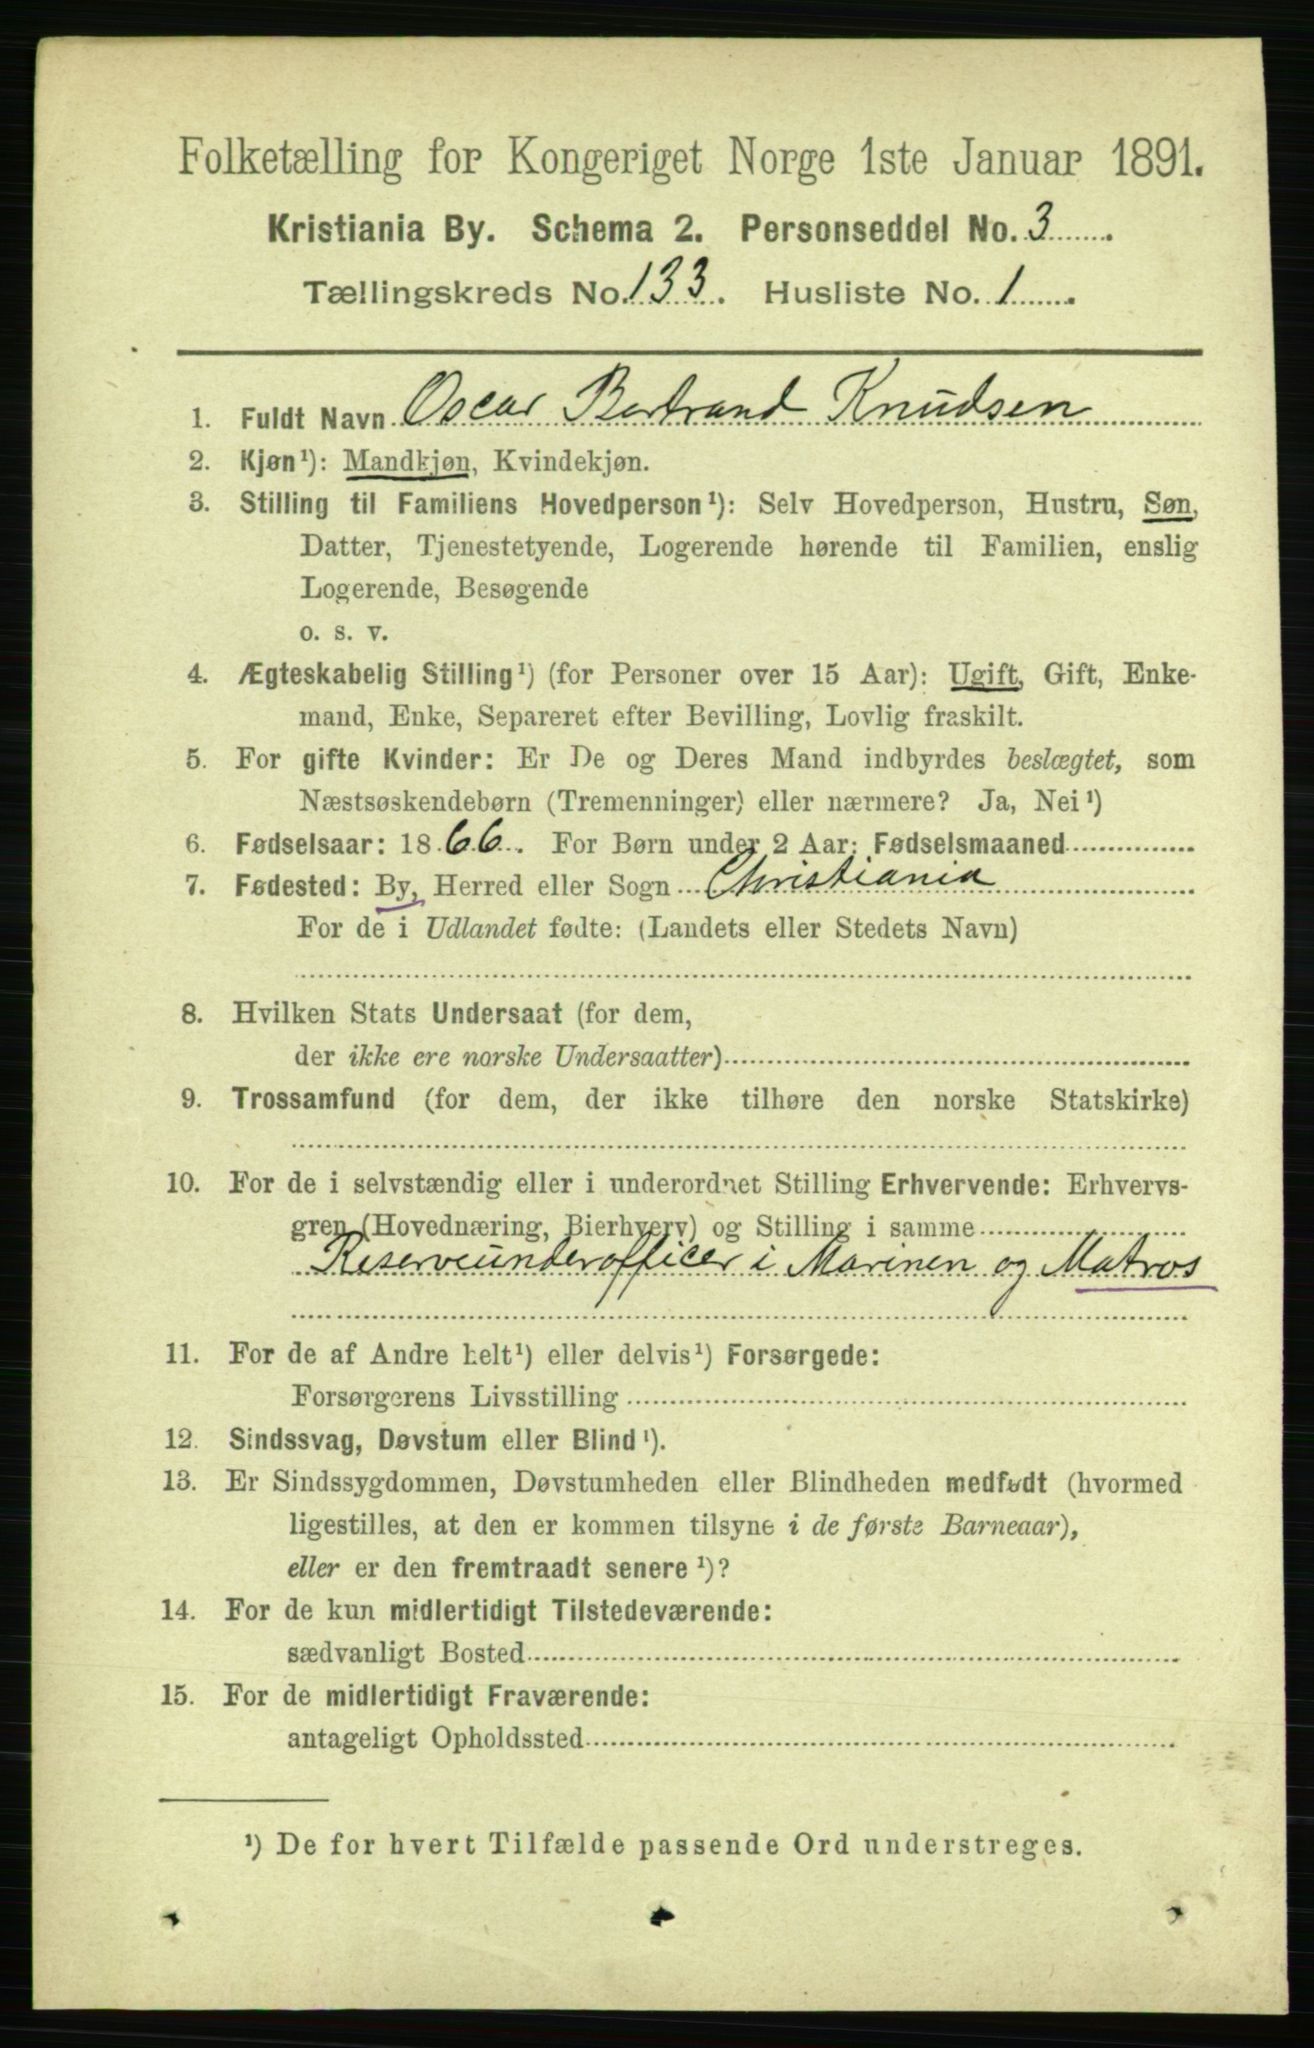 Folketælling for Kongeriget Norge 1ste Januar 1891.
Kristiania By. Schema 2. Personseddel No. 3
Tællingskreds No. 133. Husliste No. 1
1. Fuldt Navn Oscar Bertrand Knudsen
2. Kjøn¹): Mandkjøn, Kvindekjøn.
3. Stilling til Familiens Hovedperson¹): Selv Hovedperson, Hustru, Søn,
Datter, Tjenestetyende, Logerende hørende til Familien, enslig
Logerende, Besøgende
o. s. v.
4. Ægteskabelig Stilling¹) (for Personer over 15 Aar): Ugift, Gift, Enke-
mand, Enke, Separeret efter Bevilling, Lovlig fraskilt.
5. For gifte Kvinder: Er De og Deres Mand indbyrdes beslægtet, som
Næstsøskendebørn (Tremenninger) eller nærmere? Ja, Nei¹)
6. Fødselsaar: 1866. For Børn under 2 Aar: Fødselsmaaned
7. Fødested: By, Herred eller Sogn Christiania
For de i Udlandet fødte: (Landets eller Stedets Navn)
8. Hvilken Stats Undersaat (for dem,
der ikke ere norske Undersaatter)
9. Trossamfund (for dem, der ikke tilhøre den norske Statskirke)
10. For de i selvstændig eller i underordnet Stilling Erhvervende: Erhvervs-
gren (Hovednæring, Bierhverv) og Stilling i samme
Reserveunderofficer i Marinen og Matros
11. For de af Andre helt¹) eller delvis¹) Forsørgede:
Forsørgerens Livsstilling
12. Sindssvag, Døvstum eller Blind¹).
13. Er Sindssygdommen, Døvstumheden eller Blindheden medfødt (hvormed
ligestilles, at den er kommen tilsyne i de første Barneaar),
eller er den fremtraadt senere¹)?
14. For de kun midlertidigt Tilstedeværende:
sædvanligt Bosted
15. For de midlertidigt Fraværende:
antageligt Opholdssted
¹) De for hvert Tilfælde passende Ord understreges.